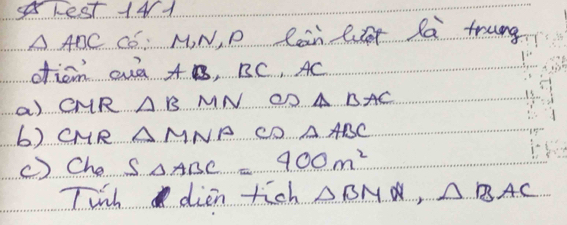 Test 1
Δ ABC có: M,N,P lần lượt là trung
điểm của AB, BC, AC
a) CMR Δ BMN ∽ Δ BAC
b) CMR Δ MNP ∽ Δ ABC
c) Cho S Δ ABC = 400m²
Tính diện tích Δ BMN, Δ BAC